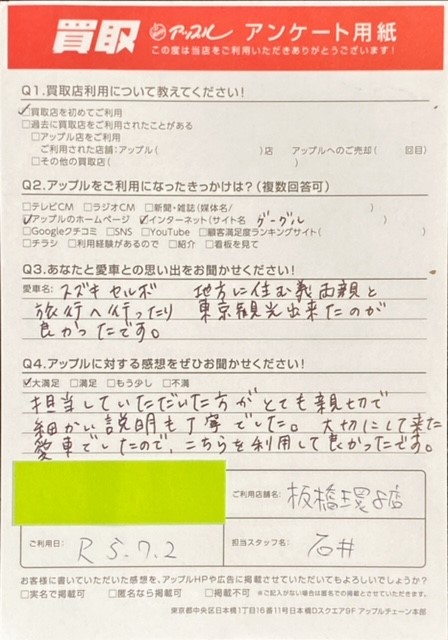 買取 アップル アンケート用紙
この度は当店をご利用いただきありがとうございます!
Q1.買取店利用について教えてください!
☑買取店を初めてご利用
□過去に買取店をご利用されたことがある
□アップル店をご利用
ご利用された店舗:アップル( )店 アップルへのご売却( 回目)
□その他の買取店( )
Q2.アップルをご利用になったきっかけは?(複数回答可)
□テレビCM □ラジオCM □新聞・雑誌(媒体名/ )
☑アップルのホームページ ☑インターネット(サイト名 グーグル )
□Googleクチコミ □SNS □YouTube □顧客満足度ランキングサイト( )
□チラシ □利用経験があるので □紹介 □看板を見て
Q3.あなたと愛車との思い出をお聞かせください!
愛車名: スズキ セルボ 地方に住む義両親と
旅行へ行ったり 東京観光出来たのが
良かったです。
Q4.アップルに対する感想をぜひお聞かせください!
☑大満足 □満足 □もう少し □不満
担当していただいた方がとても親切で
細かい説明も丁寧でした。大切にして来た
愛車でしたので、こちらを利用して良かったです。
ご利用店舗名: 板橋環8店
ご利用日: R5.7.2 担当スタッフ名: 石井
お客様に書いていただいた感想を、アップルHPや広告に掲載させていただいてもよろしいでしょうか?
□実名で掲載可 □匿名なら掲載可 □掲載不可 ※ご記入がない場合は匿名での掲載とさせていただきます。
東京都中央区日本橋1丁目16番11号日本橋Dスクエア9F アップルチェーン本部